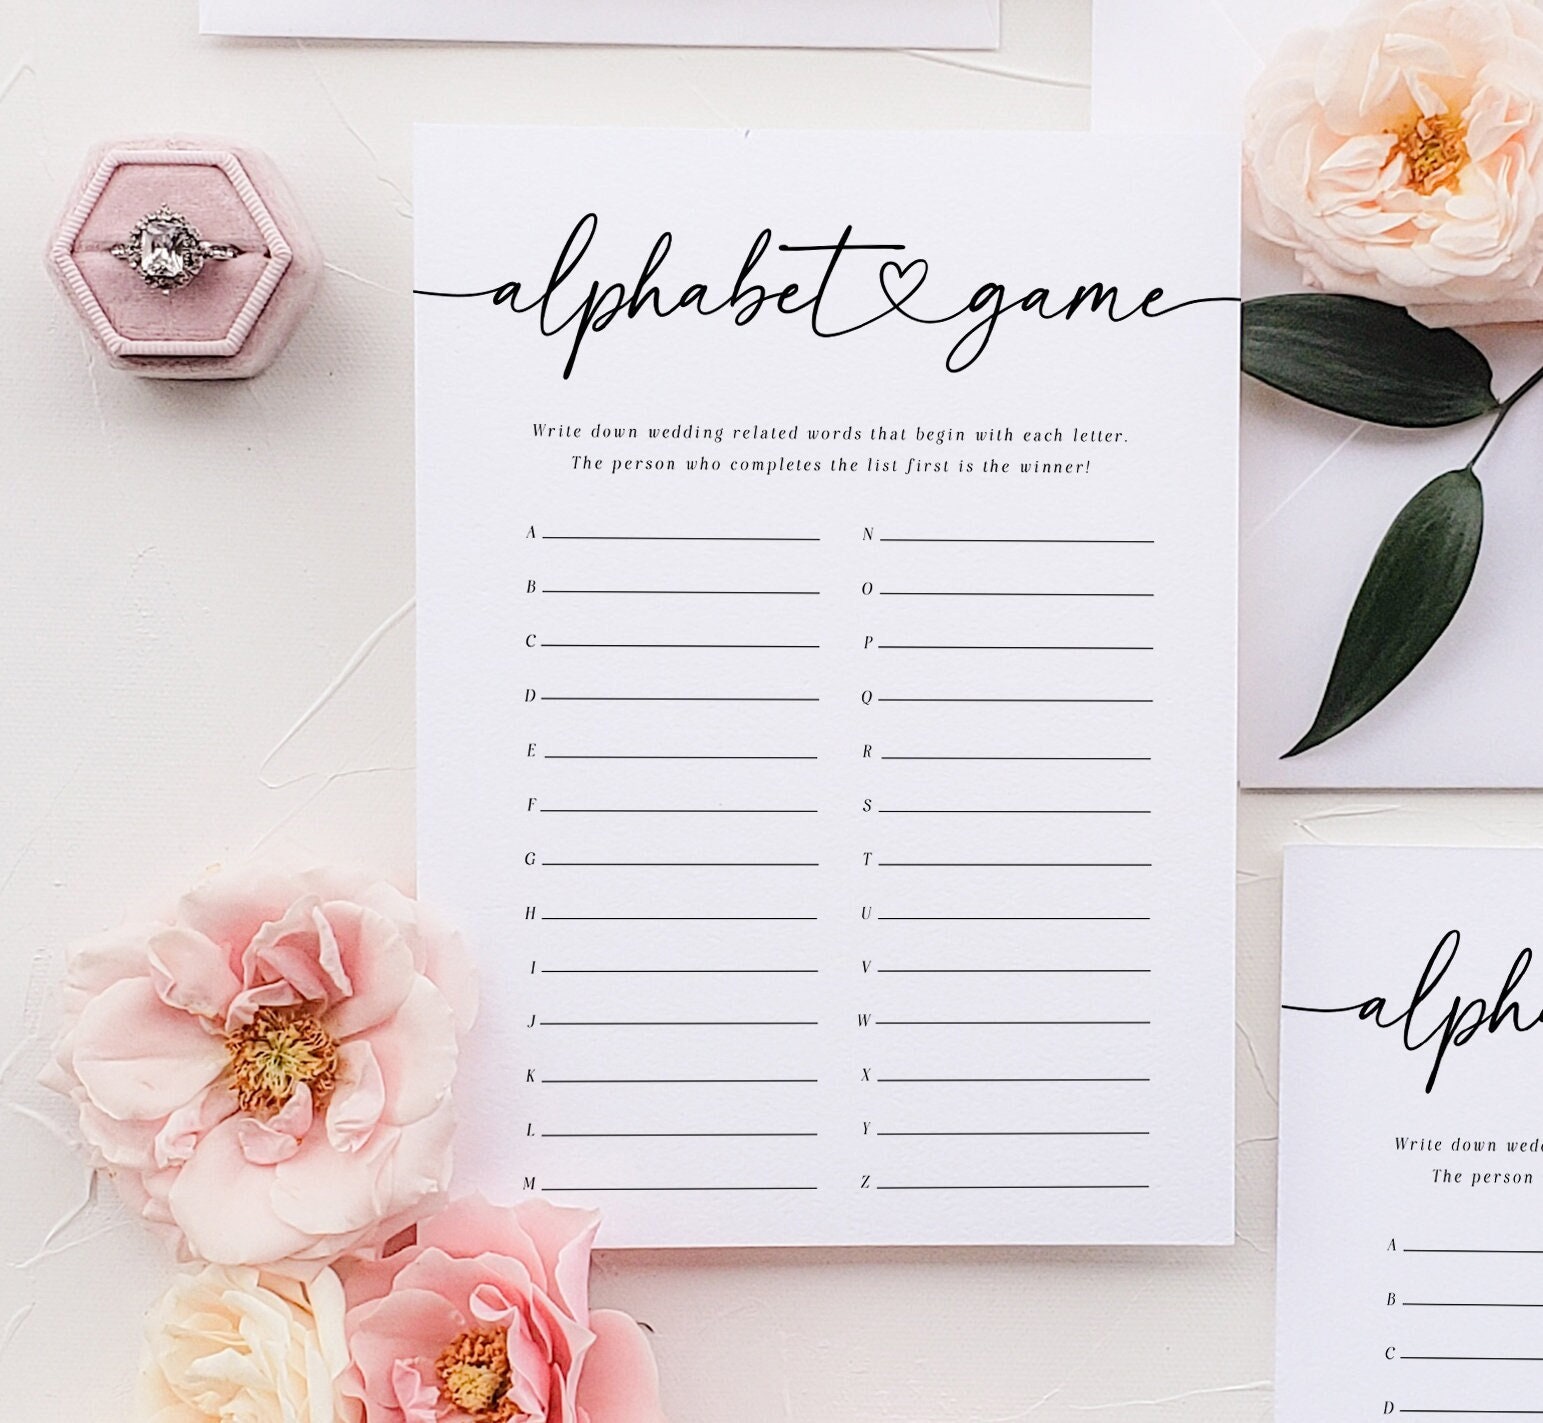 alphabet game
Write down wedding related words that begin with each letter.
The person who completes the list first is the winner!
A
B
C
D
E
F
G
H
I
J
K
L
M
N
O
P
Q
R
S
T
U
V
W
X
Y
Z
alph
Write down
The person
A
B
C
D